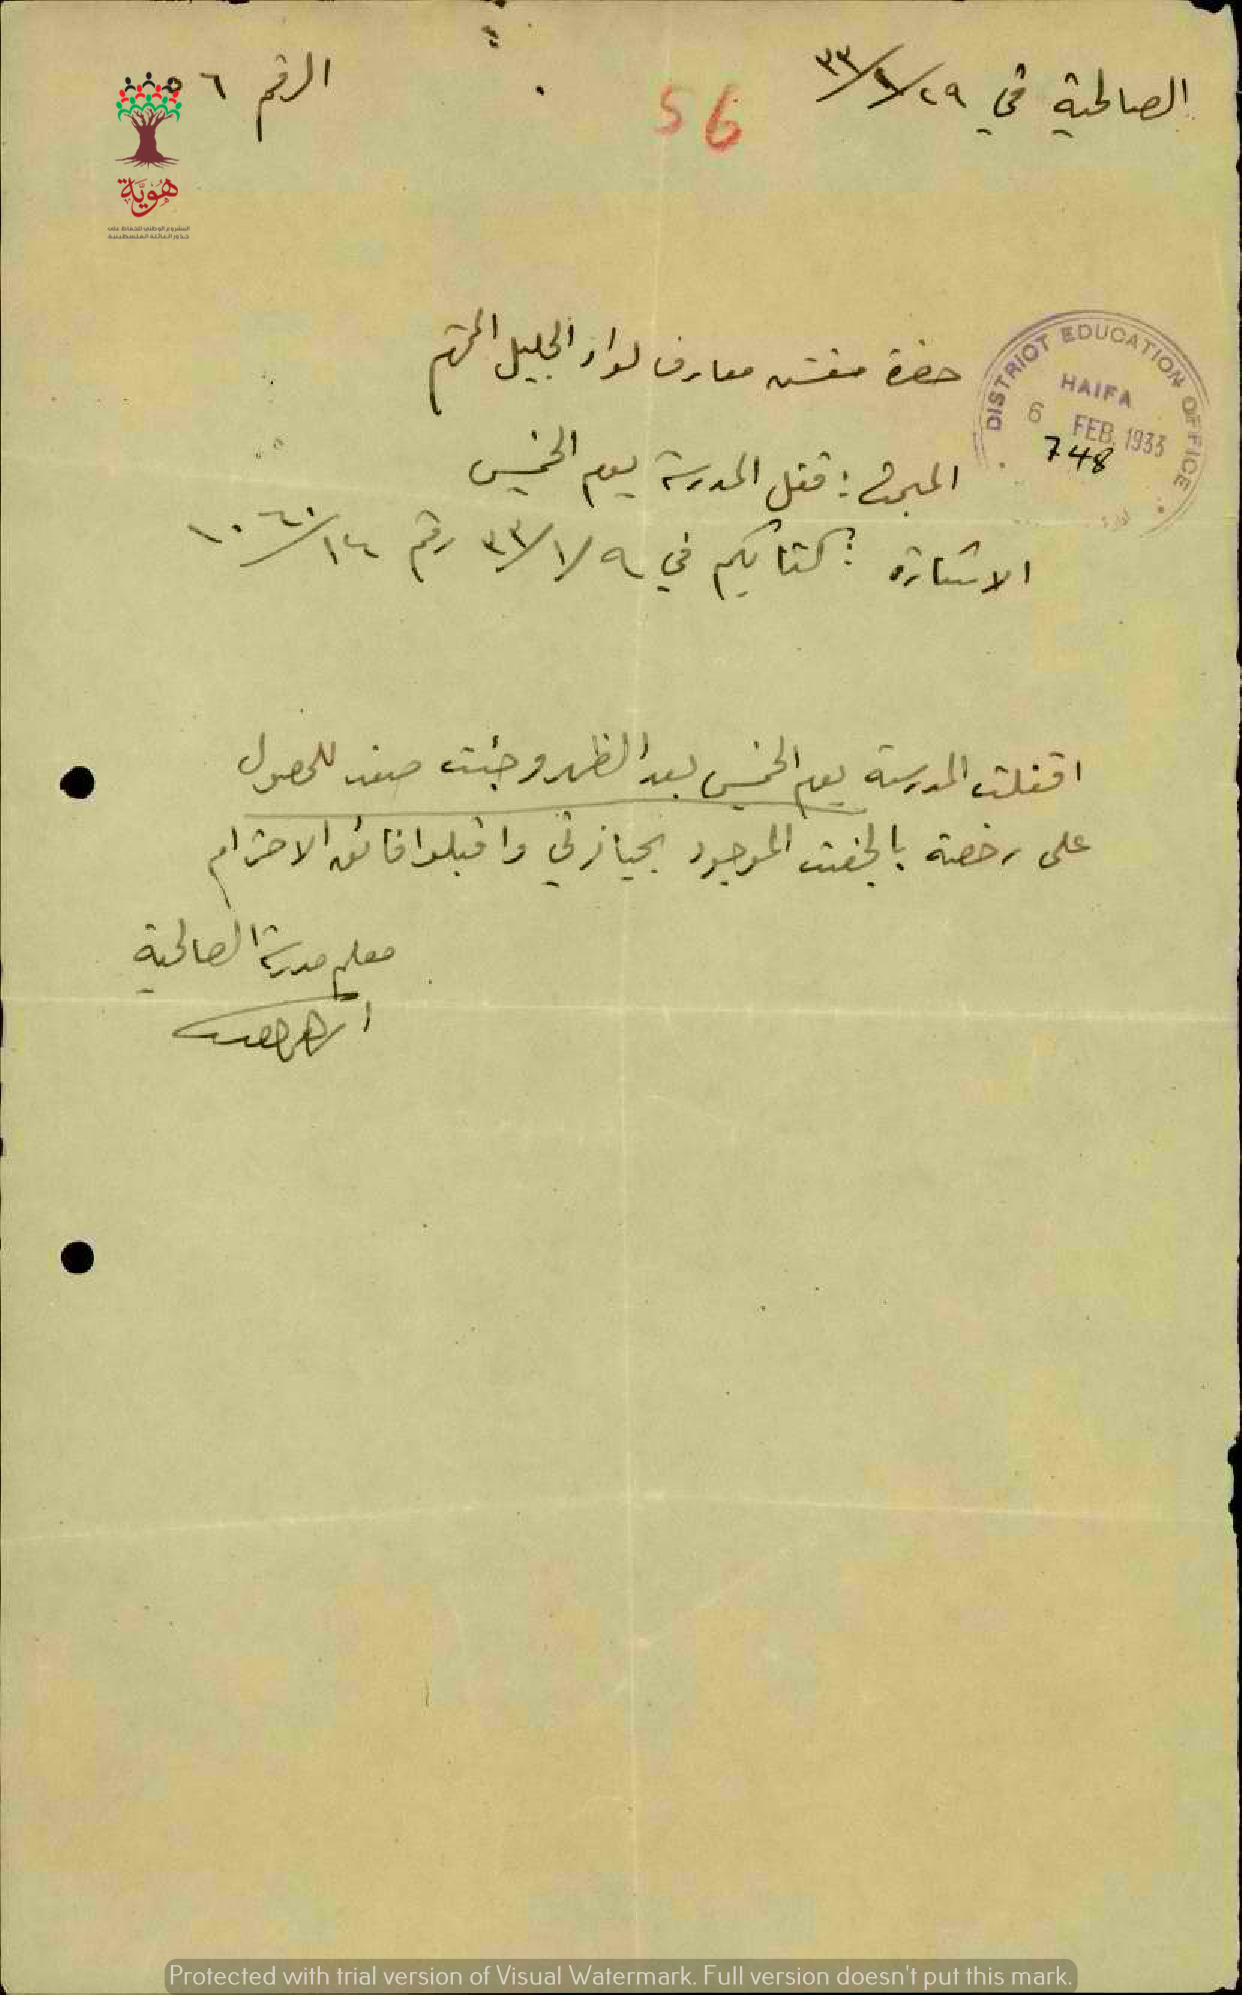 الصالحية في ٢٩/١/٣٣
الرقم ٥٦
56
هوية
المشروع الوطني للحفاظ على
جذور العائلة الفلسطينية
حضرة مفتش معارف لواء الجليل المحترم
DISTRICT EDUCATION OFFICE
HAIFA
6 FEB 1933
748
المبحث : قفل المدرسة يوم الخميس
الاشارة : كتابكم في ٩/١/٣٣ رقم
اقفلت المدرسة يوم الخميس بعد الظهر وجئت صفد للحصول
على رخصة بالجفت الموجود بحيازتي واقبلوا فائق الاحترام
معلم مدرسة الصالحية
Protected with trial version of Visual Watermark. Full version doesn't put this mark.